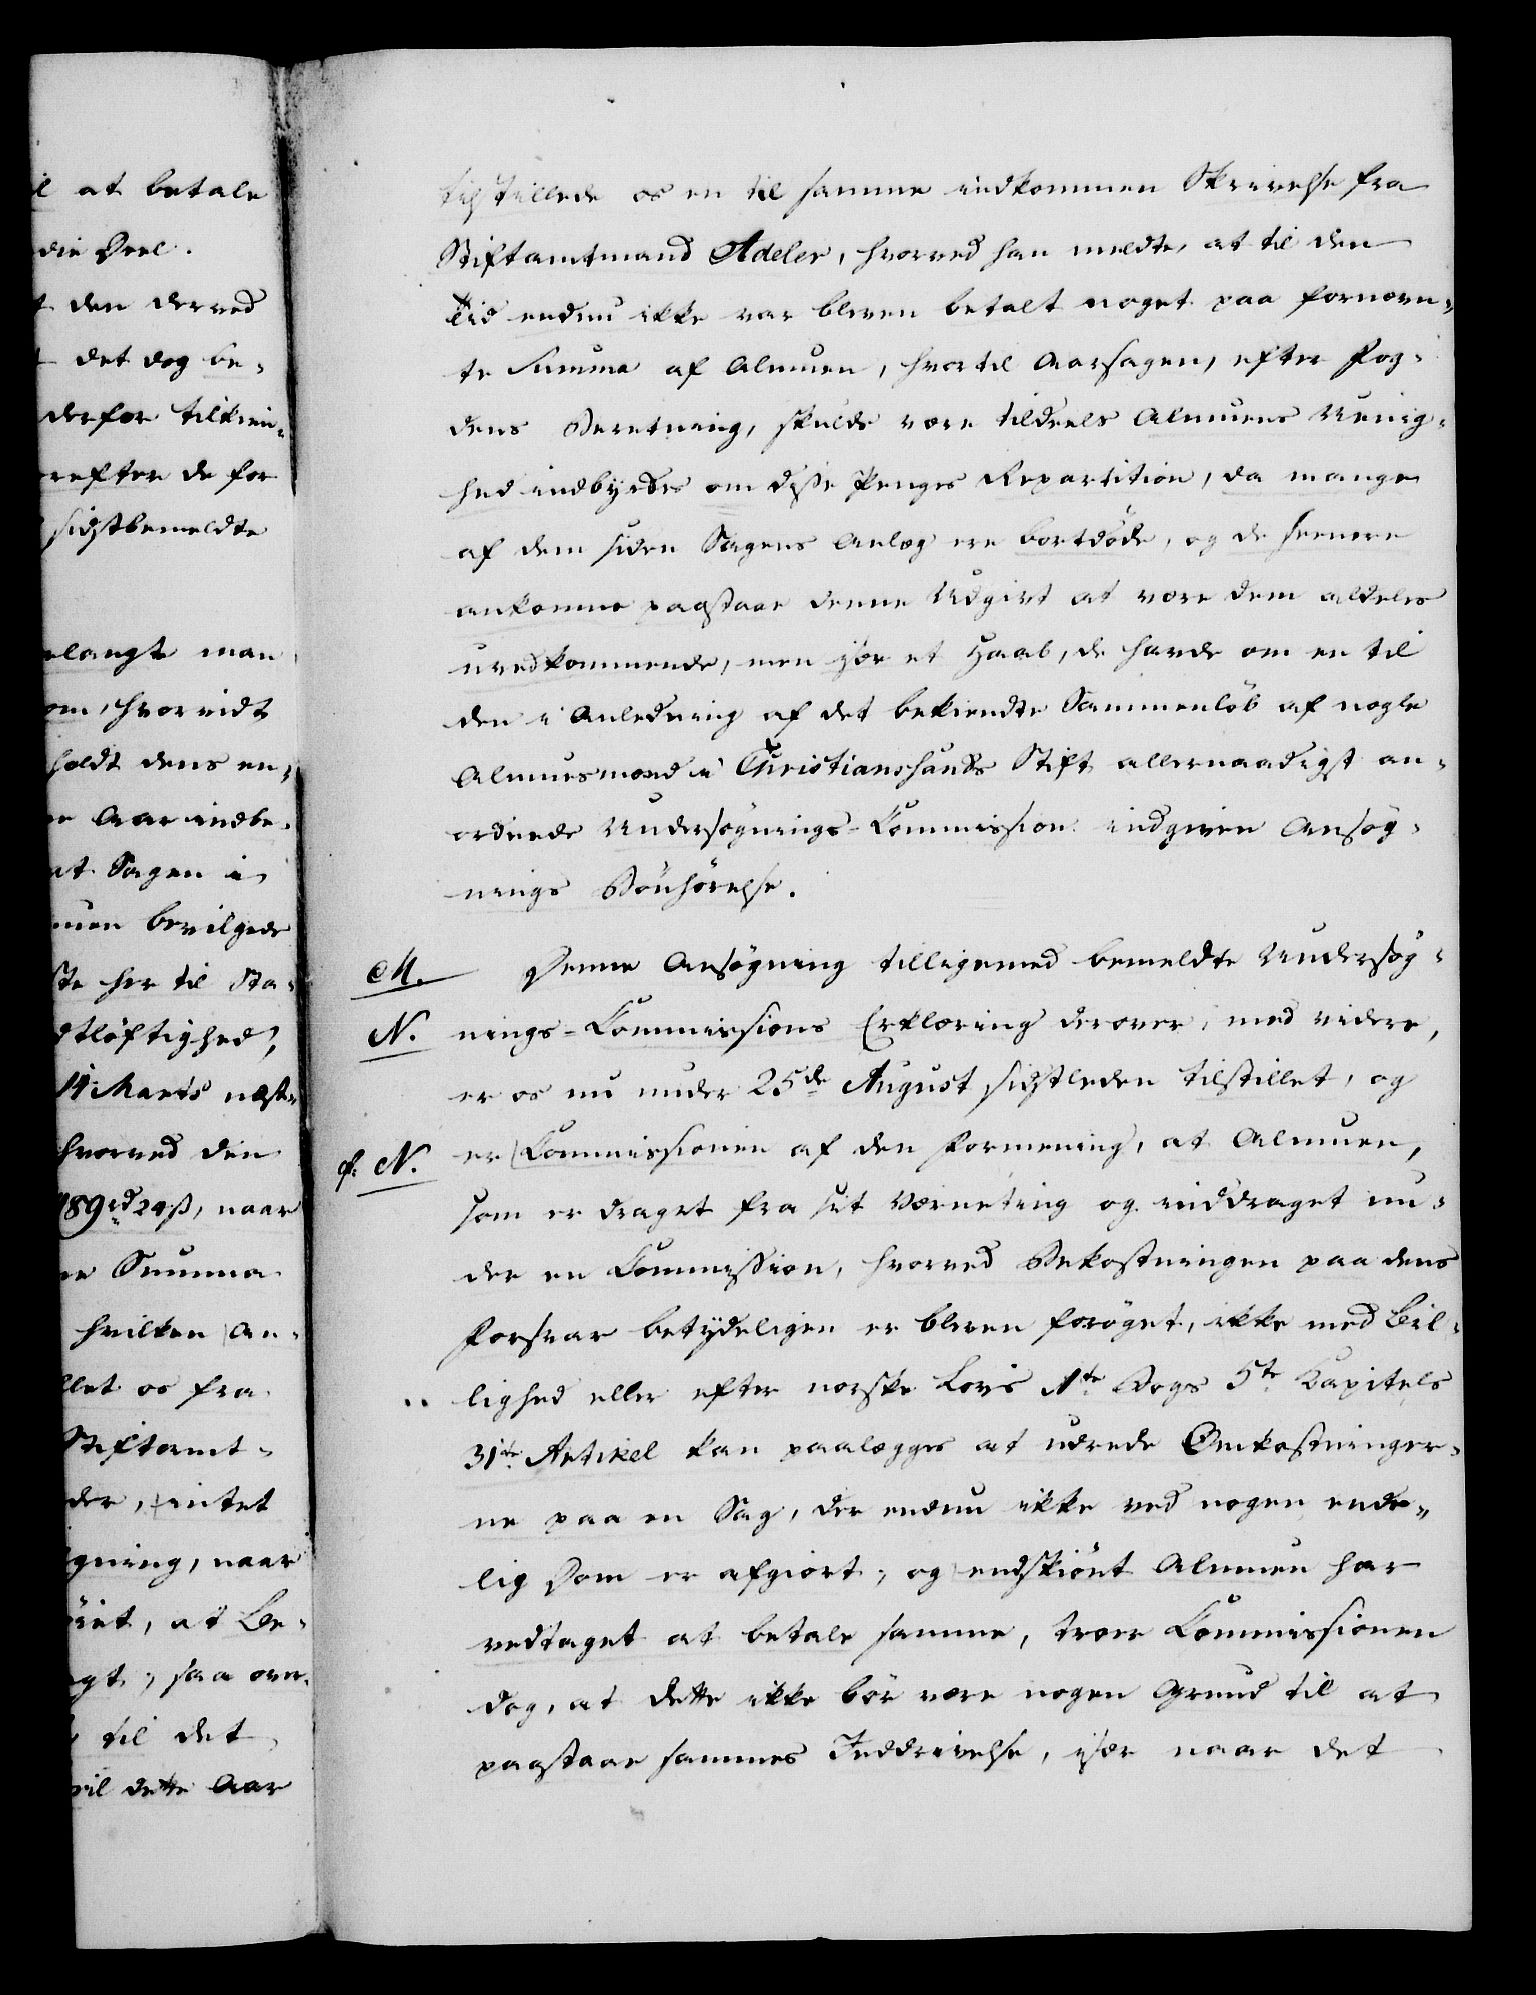 il at betale
die Deel.
t den derved
t det dog be-
derfor tilkien-
refter de for
sidstbemeldte
langt man
om, hvorvidt
holdt dens en-
re Aar indbe-
at Sagen i
muen bevilgede
ste her til Sta-
dtløftighed,
14 Marts næst-
hvorved den
189 rd 24 ß, naar
ne Summa
hvilken An-
llet os fra
Stiftamt-
der, intet
gning, naar
iet, at Be-
gt, saa over-
til det
ril dette Aar
tilstillede os en til samme indkommen Skrivelse fra
Stiftamtmand Adeler, hvorved han meldte, at til den
Tid endnu ikke var bleven betalt noget paa fornævn-
te Summa af Almuen, hvortil Aarsagen, efter Fog-
dens Beretning, skulde være tildeels Almuens Uenig-
hed indbyrdes om disse Penges Repartition, da mange
af dem siden Sagens Anlæg ere bortdöde, og de seenere
ankomne paastaae denne Udgivt at være dem aldeles
uvedkommende, men især et Haab, de havde om en til
den i Anledning af det bekiendte Sammenlöb af nogle
Almuesmænd i Christiansands Stift allernaadigst an-
ordnede Undersögnings-Commission indgiven Ansög-
nings Bönhörelse.
M. Denne Ansögning tilligemed bemeldte Undersög-
N. nings-Commissions Erklæring derover, med videre,
er os nu under 25de August sidstleden tilstillet, og
f. N. er Commissionen af den Formening, at Almuen,
som er draget fra sit Værneting og inddraget un-
der en Commission, hvorved Bekostningen paa dens
Forsvar betydeligen er bleven forøget, ikke med Bil-
lighed eller efter norske Lovs 1te Bogs 5te Kapitels
31te Artikel kan paalægges at udrede Omkostninger-
ne paa en Sag, der endnu ikke ved nogen ende-
lig Dom er afgiort; og endskiönt Almuen har
vedtaget at betale samme, troer Commissionen
dog, at dette ikke bör være nogen Grund til at
paastaae sammes Inddrivelse, især naar det